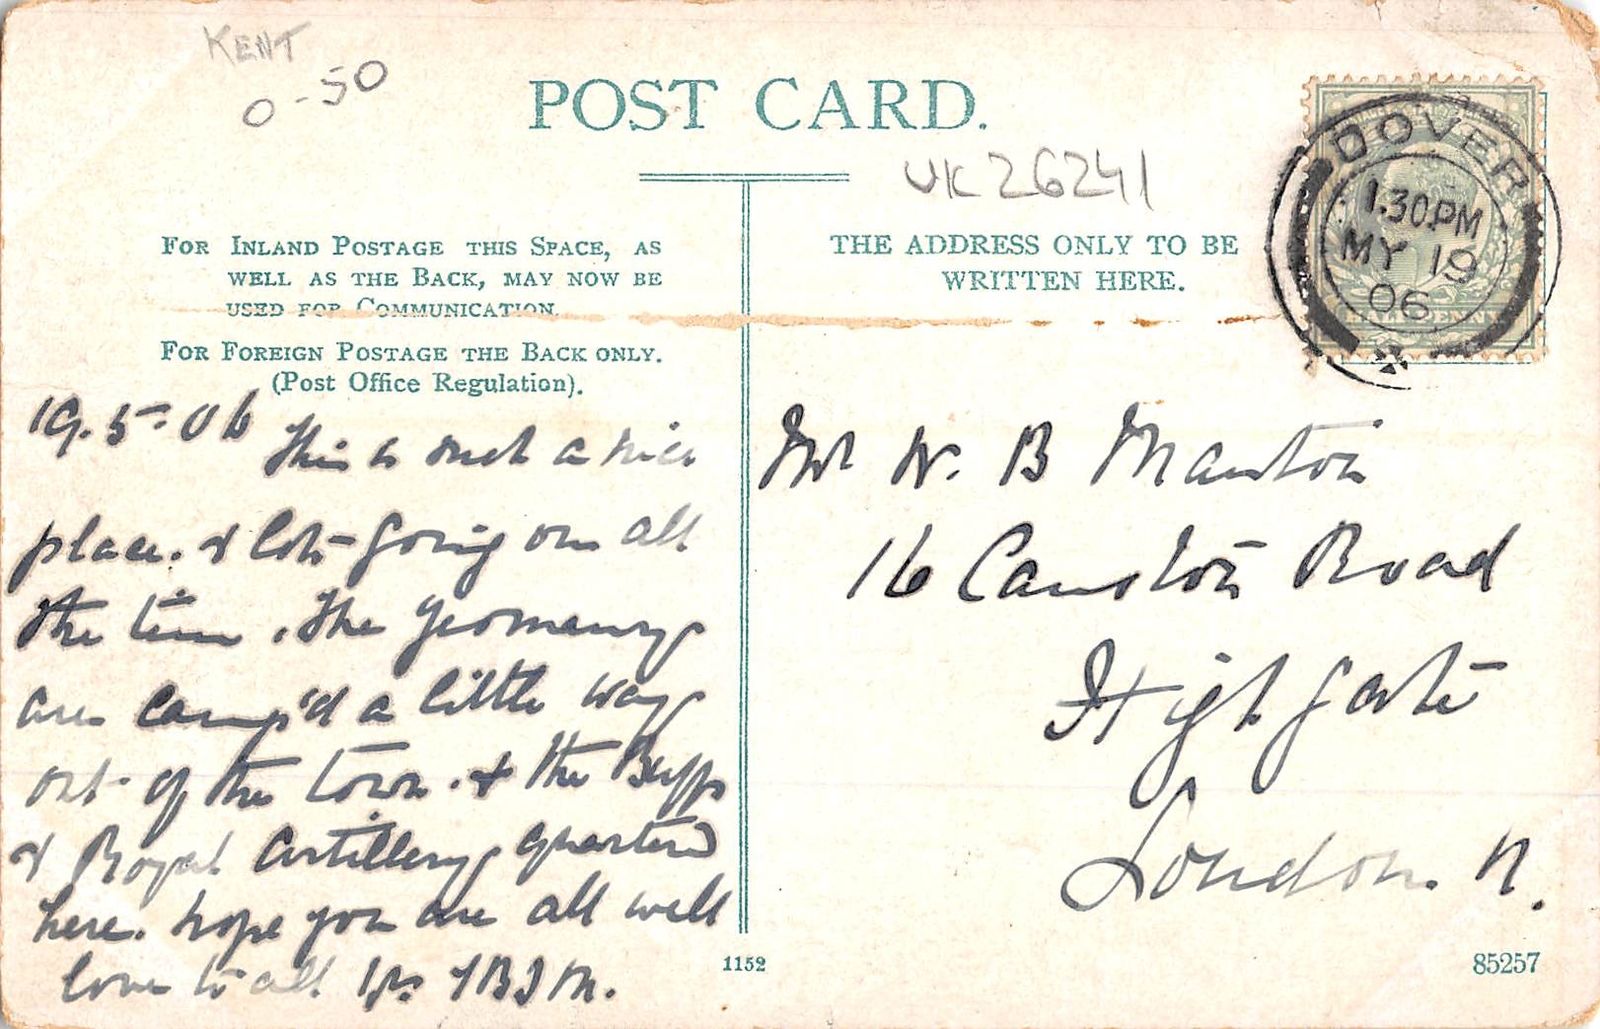 KENT
0-50
POST CARD.
UK 26241
FOR INLAND POSTAGE THIS SPACE, AS
WELL AS THE BACK, MAY NOW BE
USED FOR COMMUNICATION.
FOR FOREIGN POSTAGE THE BACK ONLY.
(Post Office Regulation).
THE ADDRESS ONLY TO BE
WRITTEN HERE.
DOVER
1.30PM
MY 19
06
HALFPENNY
19.5.06 This is such a nice
place. & lots going on all
the time. The Yeomanry
are camp'd a little way
out of the town. & the Buffs
& Royal Artillery quartered
here. hope you are all well
love to all
Mr W. B Manton
16 Causton Road
Highgate
London. N.
1152
85257